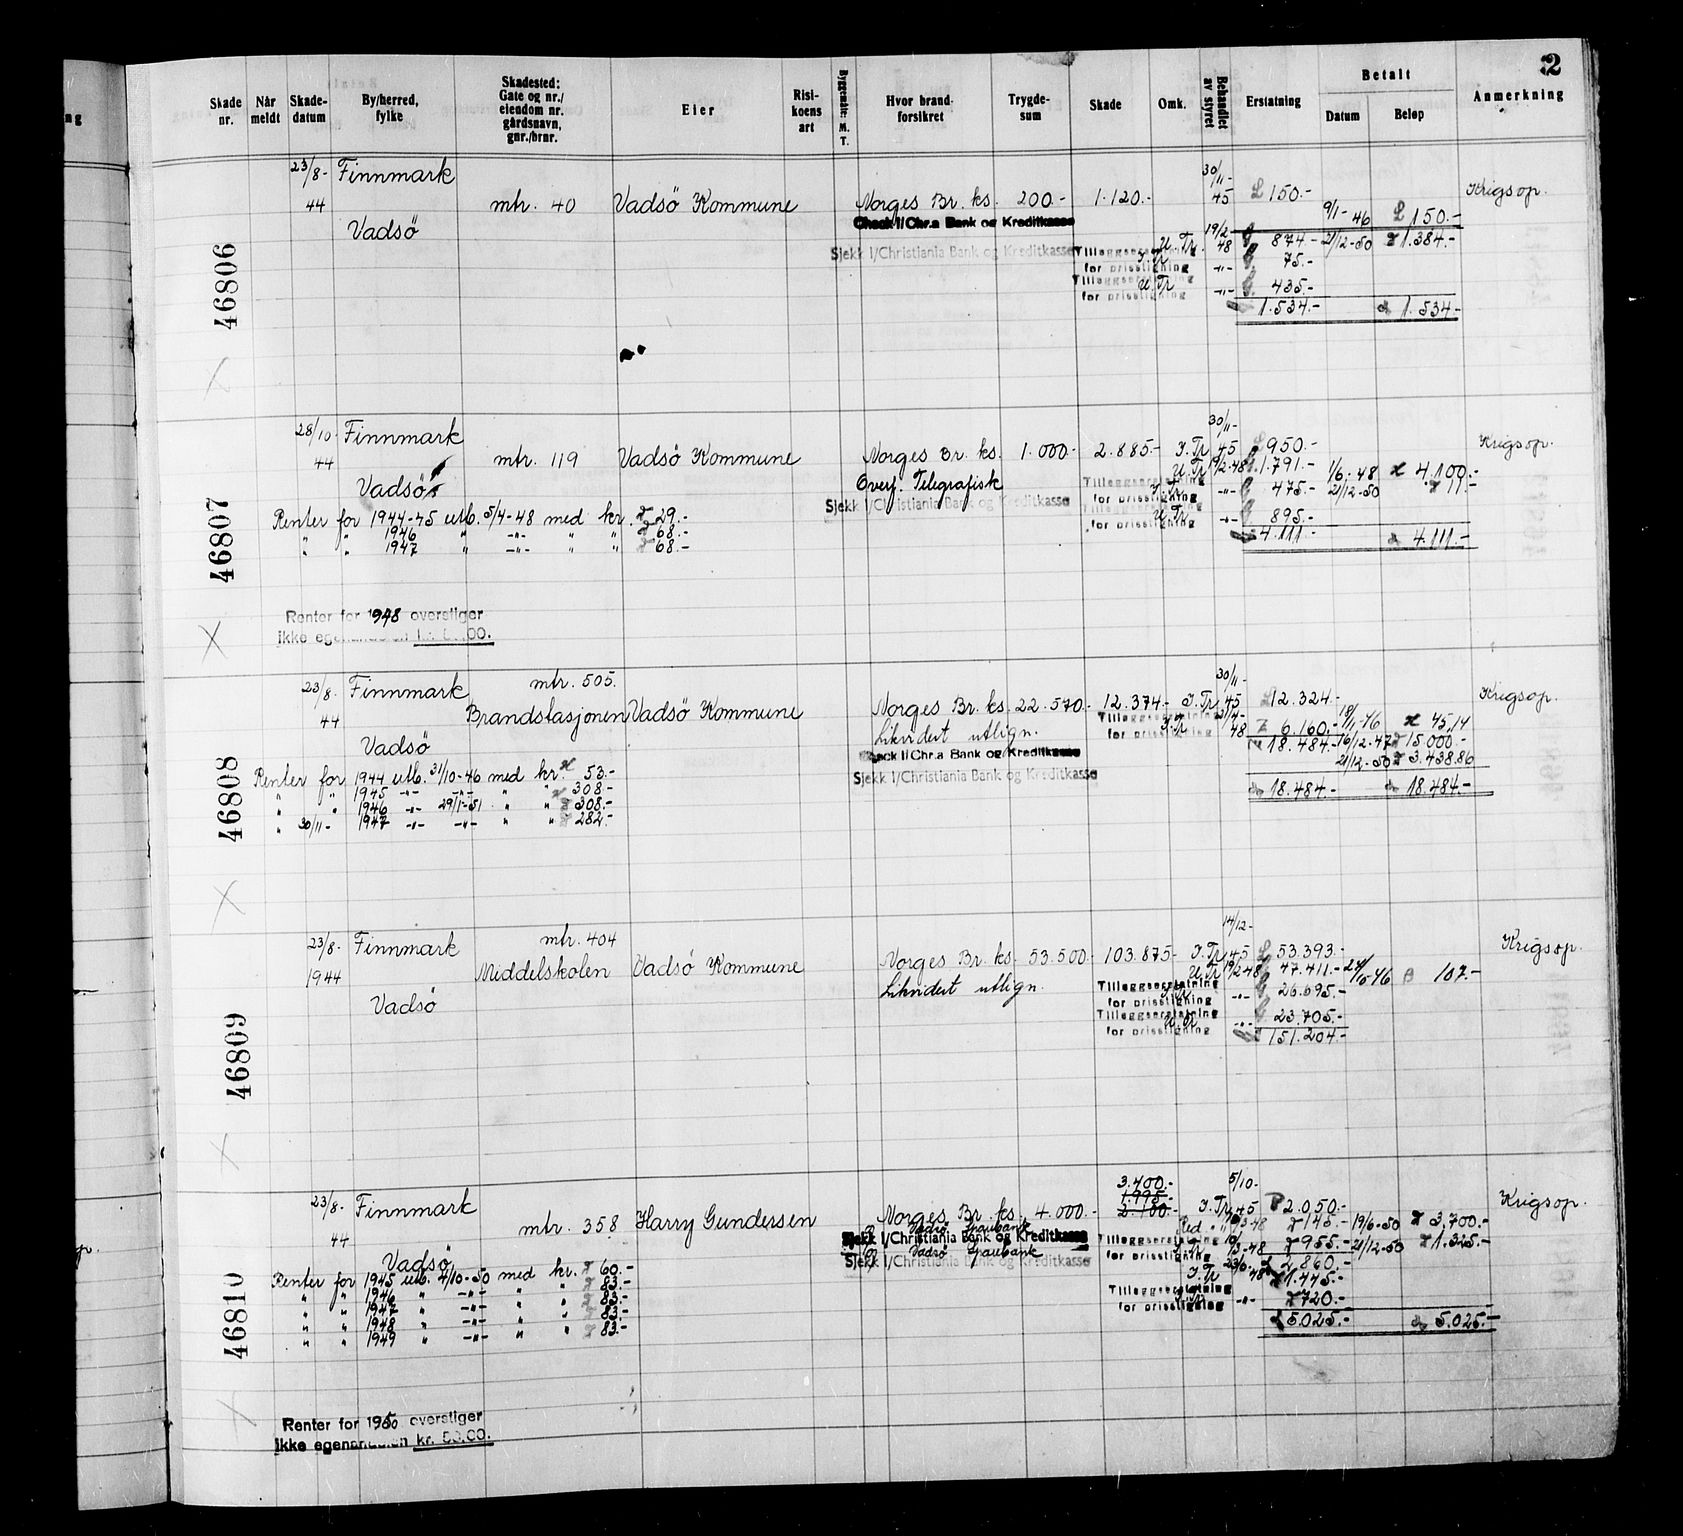 2
Skade nr.
Når meldt
Skade-datum
By/herred, fylke
Skadested: Gate og nr./ eiendom nr. gårdsnavn, gnr./brnr.
Eier
Risi-koens art
Byggemåte: M. T.
Hvor brand-forsikret
Trygde-sum
Skade
Omk.
Behandlet av styret
Erstatning
Betalt
Datum
Beløp
Anmerkning
46806
23/8- Finnmark 30/11-
44 mtr. 40 Vadsö Kommune Norges Br. ks. 200.- 1.120.- 45 £ 150.- Krigsop.
9/1-46 £ 150.-
Vadsö Check l/Chr.a Bank og Kreditkasse 19/2-
U. Tr. 48 874.- 21/12-50 1.384.-
Sjekk l/Christiania Bank og Kreditkasse Tilleggserstatning for prisstigning -"- 75.-
Tilleggserstatning for prisstigning U. Tr -"- 435.-
1.534.- 1.534.-
46807
28/10- Finnmark 30/11-
44 mtr. 119 Vadsö Kommune Norges Br. ks. 1.000.- 2.885.- I. Tr. 45 950.- Krigsop.
U. Tr 19/2-48 1.791.- 1/6-48 4.100.-
Vadsö Overf. Telegrafisk Tilleggserstatning for prisstigning -"- 475.- 21/12-50 11.-
Sjekk l/Christiania Bank og Kreditkasse
Renter for 1944-45 utb. 5/4-48 med kr. 29.- for prisstigning U. Tr -"- 895.-
" " 1946 " -"- " " 68.- 4.111.- 4.111.-
" " 1947 " -"- " " 68.-
Renter for 1948 overstiger
ikke egenandelen kr.
46808
23/8- Finnmark mtr. 505. 30/11-
44 Brandstasjonen Vadsö Kommune Norges Br. ks. 22.570.- 12.374.- I. Tr. 45 12.324.- Krigsop.
Vadsö Likvidert utlign. Tilleggserstatning for prisstigning I. Tr 48 6.160.- 18/11-46 45,14
Check l/Chr.a Bank og Kreditkasse 18.484.- 16/12-47 15.000.-
21/12-50 3.438.86
Sjekk l/Christiania Bank og Kreditkasse
Renter for 1944 utb. 31/10-46 med kr. 53.- 18.484.- 18.484.-
" " 1945 -"- -"- " " 308.-
" " 1946 -"- 29/1-51 " " 308.-
" 30/11- 1947 -"- -"- " " 282.-
46809
23/8- Finnmark mtr. 404 14/12-
1944 Middelskolen Vadsö Kommune Norges Br. ks. 53.500.- 103.875.- I. Tr. 45 53.393.- Krigsop.
Vadsö Likvidert utlign. U. Tr 19/2-48 47.411.- 107.-
Tilleggserstatning for prisstigning I. Tr. -"- 26.695.-
Tilleggserstatning for prisstigning U. Tr -"- 23.705.-
151.204.-
46810
3.400.-
1.995.-
23/8- Finnmark 2.100.- 5/10-
44 mtr. 358 Harry Gundersen Norges Br. ks. 4.000.- I. Tr. 45 2.050.- Krigsop.
Vadsö Sparebank Red. 145.- 19/6-50 3.700.-
Sjekk l/Christiania Bank og Kreditkasse Tilleggserstatning for prisstigning 955.- 21/12-50 1.325.-
Vadsö Vadsö Sparebank
Sjekk l/Christiania Bank og Kreditkasse 2.860.-
Renter for 1945 utb. 4/10-50 med kr. 60.- I. Tr 48 1.445.-
" " 1946 " -"- " " 83.- Tilleggserstatning for prisstigning -"- 720.-
" " 1947 " -"- " " 83.- 5.025.- 5.025.-
" " 1948 " -"- " " 83.-
" " 1949 " -"- " " 83.-
Renter for 1950 overstiger
ikke egenandelen kr. 50.00.